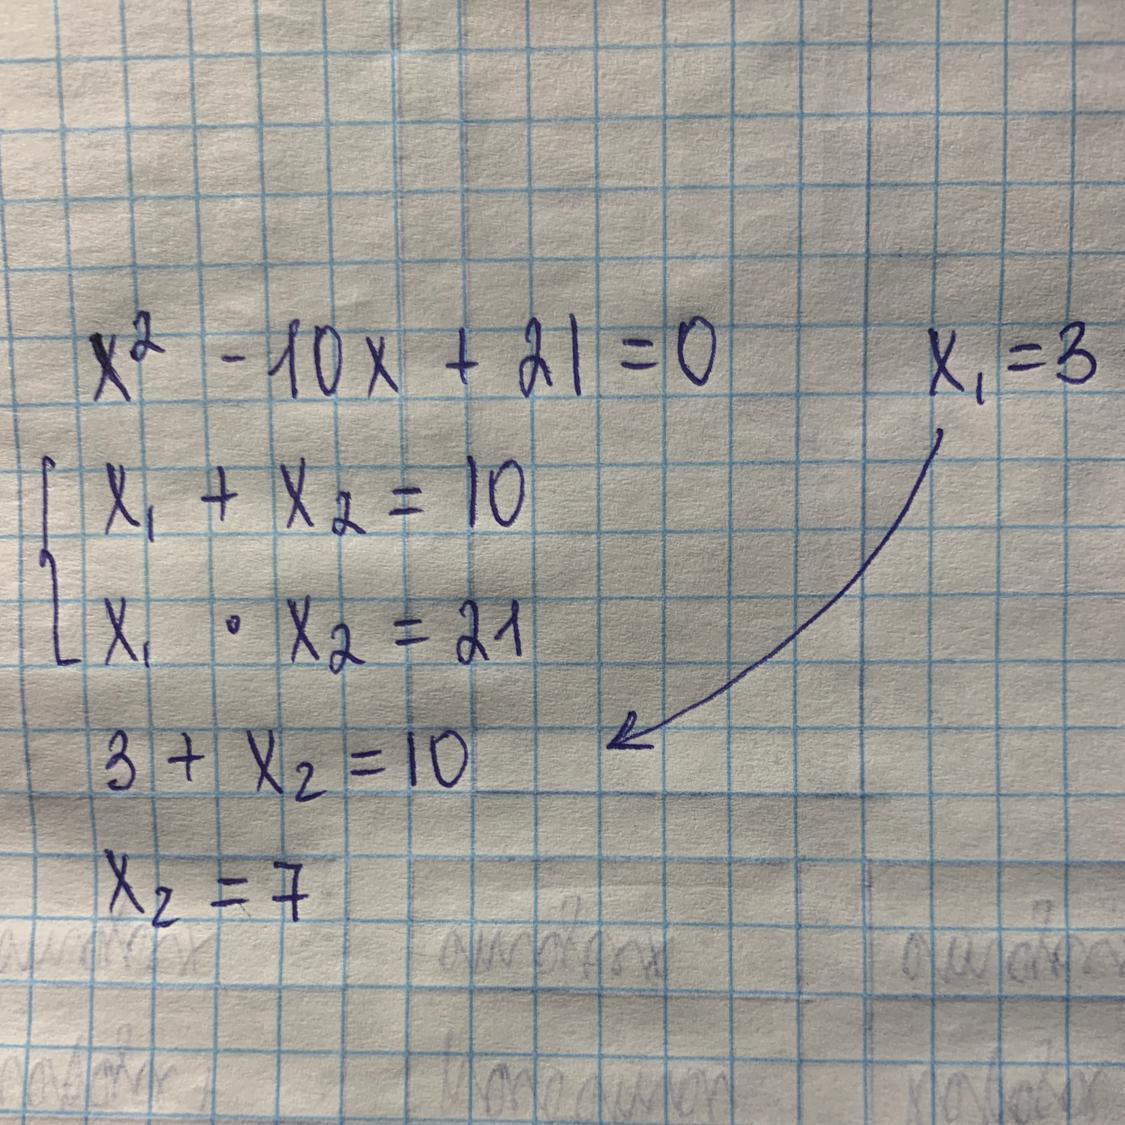 x² - 10x + 21 = 0
x₁ = 3
x₁ + x₂ = 10
x₁ · x₂ = 21
3 + x₂ = 10
x₂ = 7